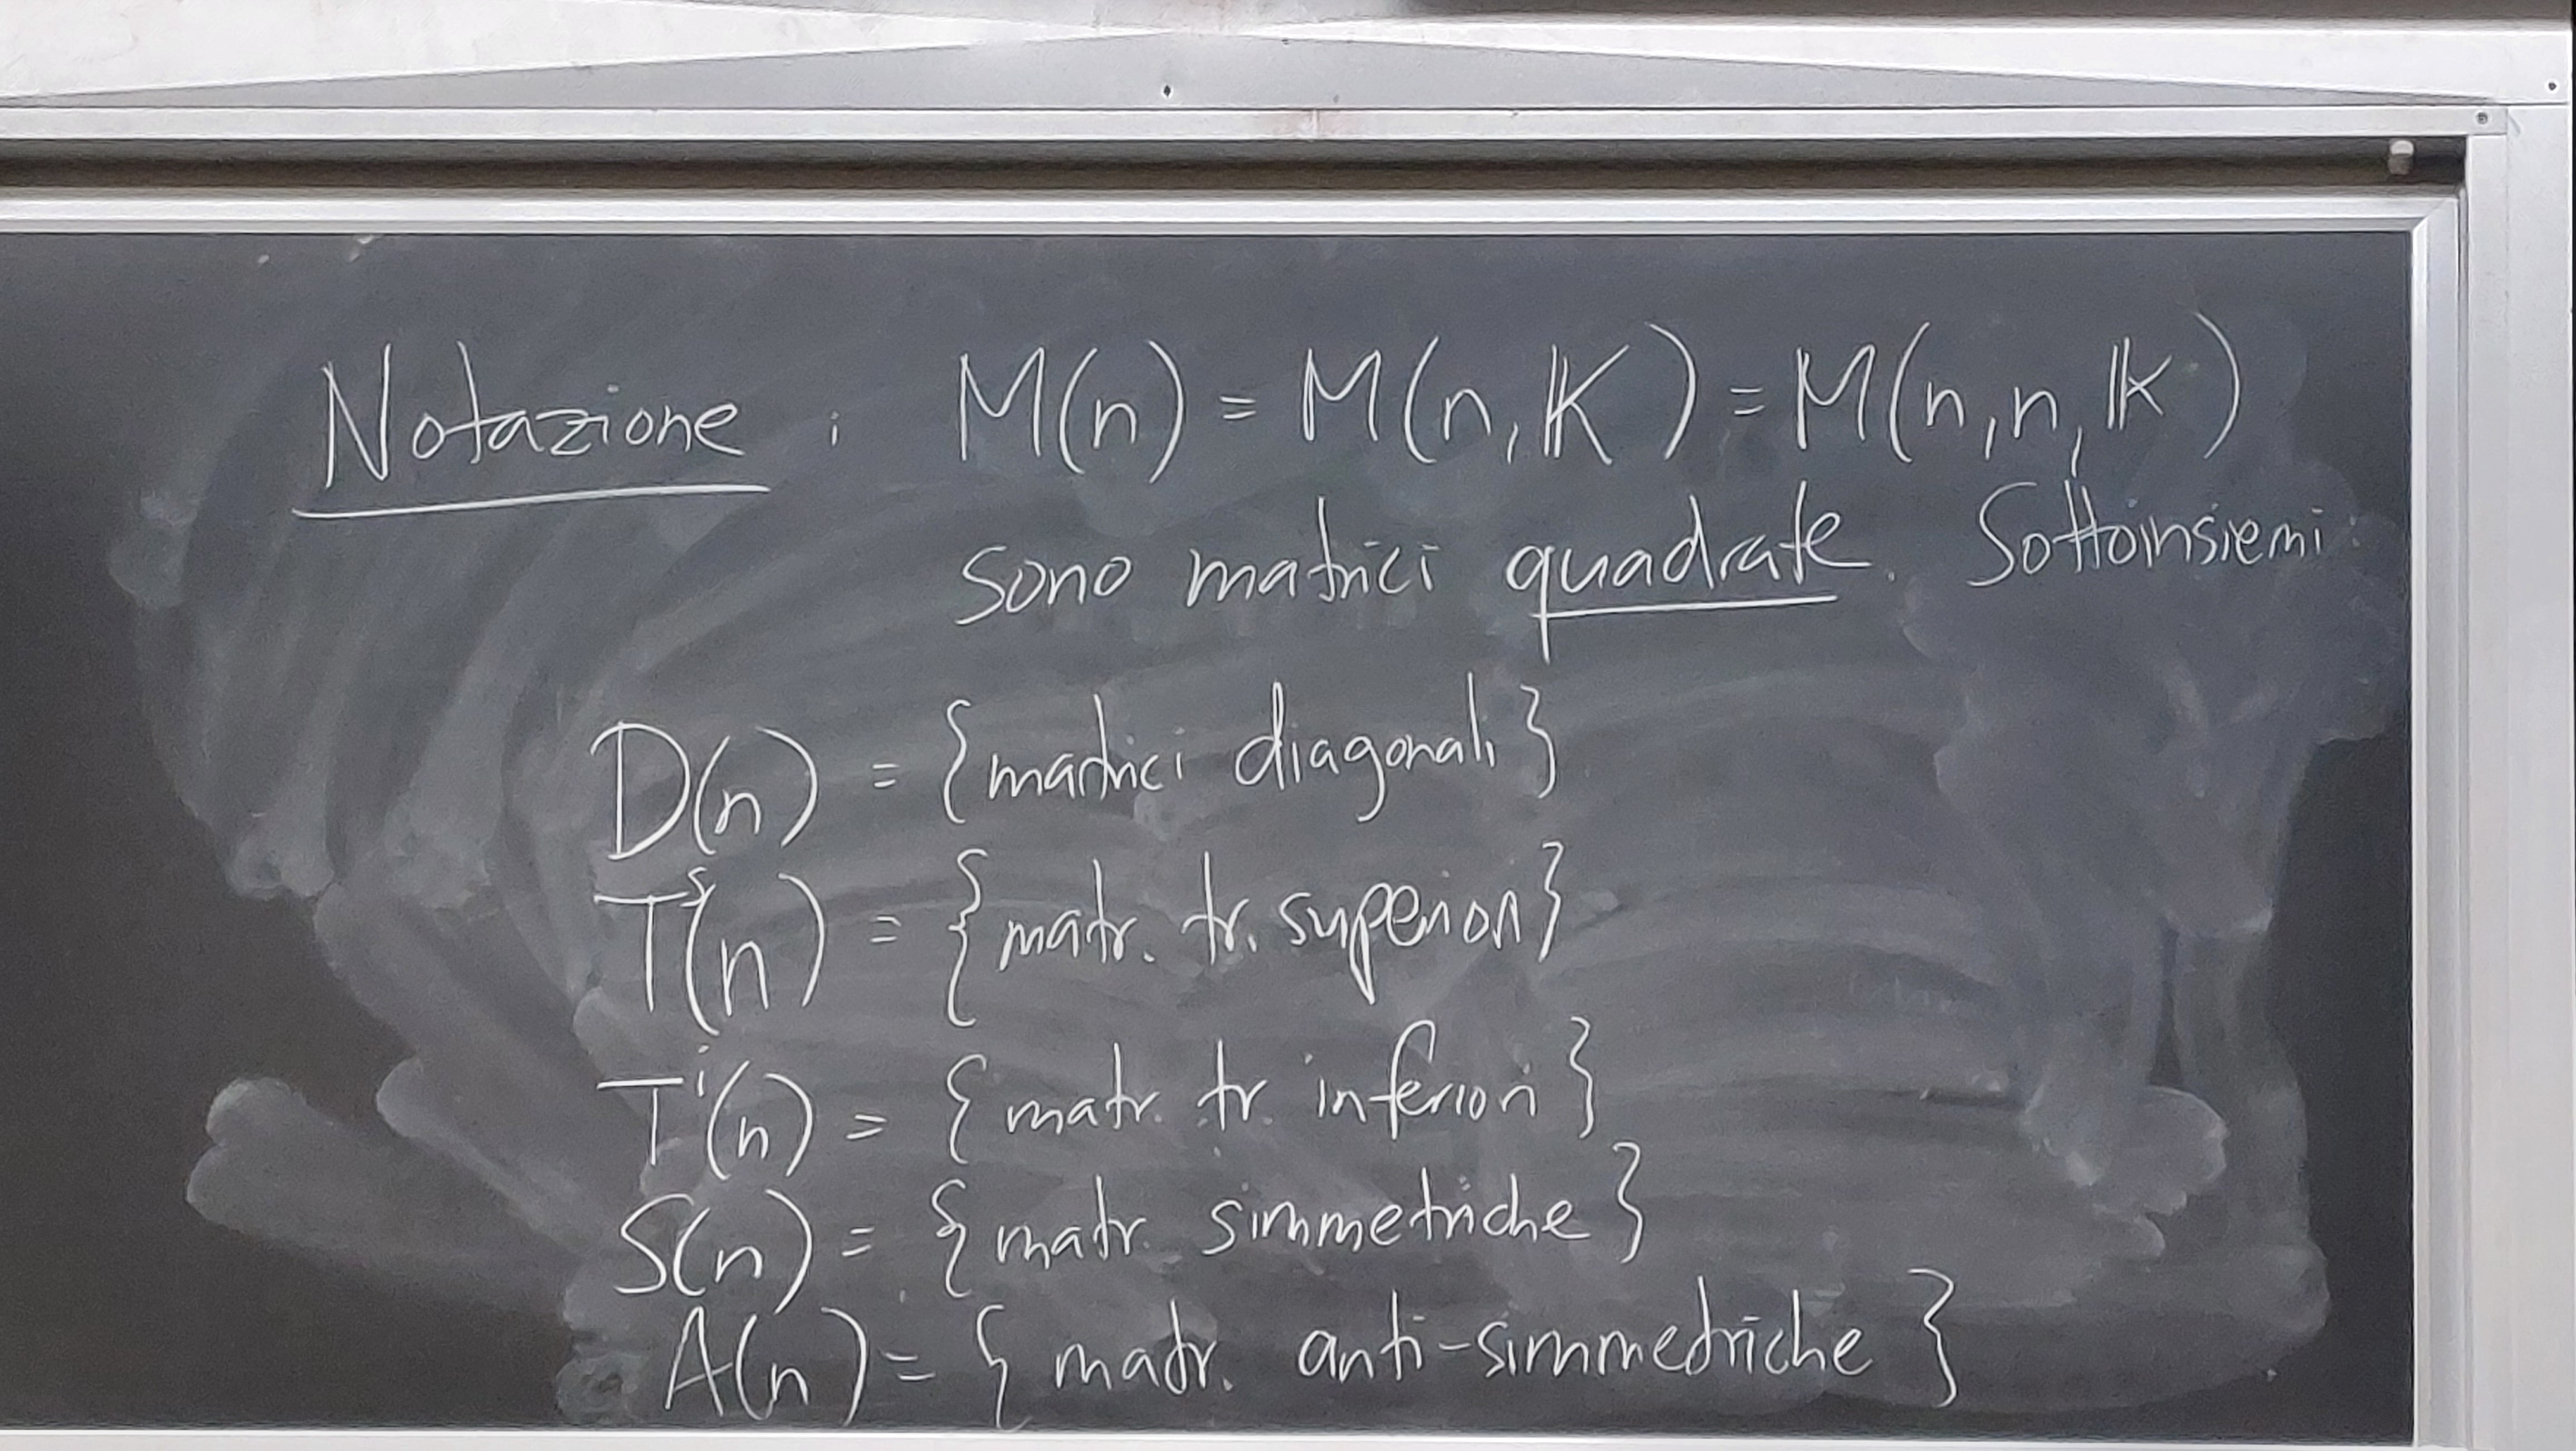 Notazione : M(n) = M(n, 𝕂) = M(n,n, 𝕂)
sono matrici quadrate. Sottoinsiemi:
D(n) = { matrici diagonali }
Tˢ(n) = { matr. tr. superiori }
Tⁱ(n) = { matr. tr. inferiori }
S(n) = { matr. simmetriche }
A(n) = { matr. anti-simmetriche }